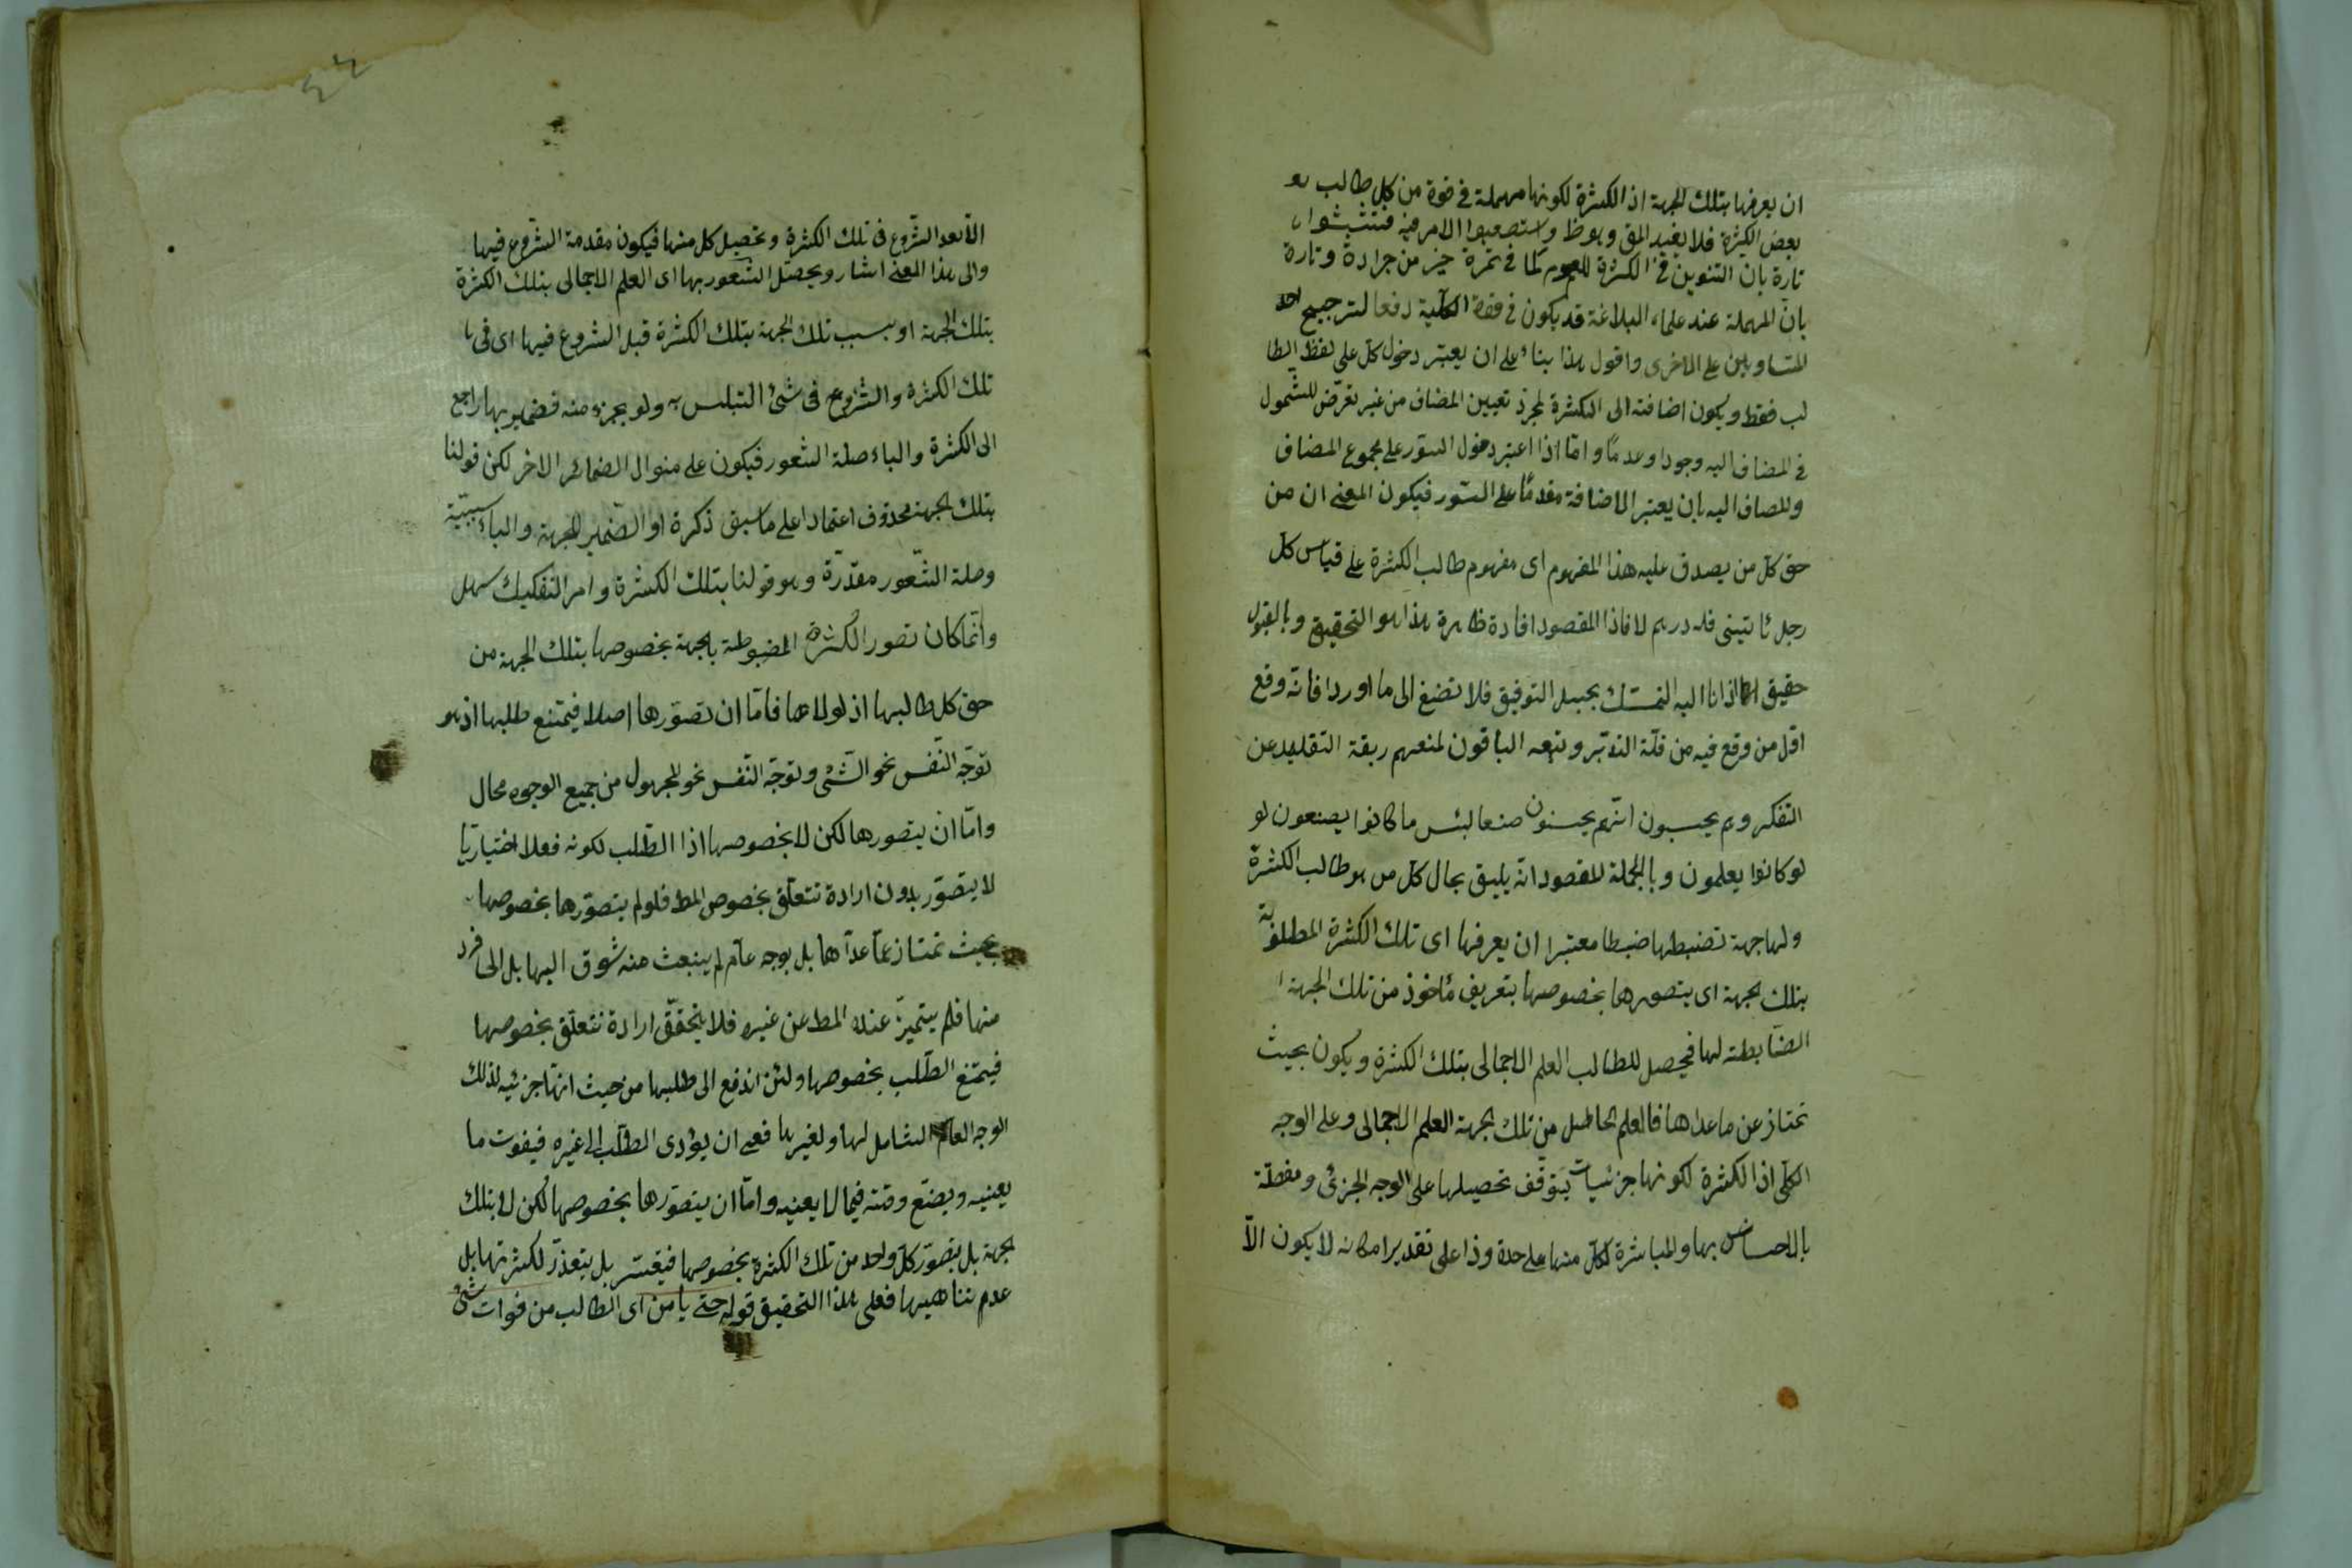 ان يعرفها بتلك الجهة اذ الكثرة لكونها مهملة في قوة من كل طالب
بعض الكثرة فلا يفيد المق وهو ظ واستصعبوا الامر فيه فتشبثوا
تارة بان التنوين في الكثرة للعموم كما في تمرة خير من جرادة وتارة
بان المهملة عند علماء البلاغة قد يكون في قوة الكلية دفعا لترجيح احد
المتساويين على الاخرى واقول هذا بناء على ان يعتبر دخول كل على لفظ الطا
لب فقط ويكون اضافته الى الكثرة لمجرد تعيين المضاف من غير تعرض للشمول
في المضاف اليه وجودا وعدما واما اذا اعتبر دخول السور على مجموع المضاف
والمضاف اليه بان يعتبر الاضافة مقدما على السور فيكون المعنى ان من
حق كل من يصدق عليه هذا المفهوم اى مفهوم طالب الكثرة على قياس كل
رجل يأتيني فله درهم لافاذا المقصود افادة ظاهرة هذا هو التحقيق وبالقبول
حقيق اذانا اليه التمسك بحبل التوفيق فلا تضغ الى ما اورد افاته وقع
اقل من وقع فيه من قلة التدبر وتبعه الباقون لمنعهم ربقة التقليد عن
التفكر وهم يحسبون انهم يحسنون صنعا لبئس ما كانوا يصنعون لو
لو كانوا يعلمون وبالجملة المقصود انه يليق بحال كل من هو طالب الكثرة
ولها جهة تضبطها ضبطا معتبرا ان يعرفها اى تلك الكثرة المطلوبة
بتلك الجهة اى يتصورها بخصوصها بتعريف مأخوذ من تلك الجهة
الضابطة لها فيحصل للطالب العلم الاجمالى بتلك الكثرة ويكون بحيث
تمتاز عن ماعداها فالعلم الحاصل من تلك الجهة العلم الاجمالى وعلى الوجه
الكلى اذ الكثرة لكونها جزئيات يتوقف تحصيلها على الوجه الجزئى ومفصلة
بالاحساس بها والمباشرة لكل منها على حدة وذا على تقدير امكانه لا يكون الا
الا بعد الشروع فى تلك الكثرة وتحصيل كل منها فيكون مقدمة الشروع فيها
والى هذا المعنى اشار ويحصل الشعور بها اى العلم الاجمالى بتلك الكثرة
بتلك الجهة او بسبب تلك الجهة بتلك الكثرة قبل الشروع فيها اى فى
تلك الكثرة والشروع فى شئ التبلس به ولو بجزء منه فضمير بها راجع
الى الكثرة والباء صلة الشعور فيكون على منوال الضمائر الاخر لكن قولنا
بتلك الجهة محذوف اعتمادا على ما سبق ذكرة او الضمير للجهة والباء سببية
وصلة الشعور مقدرة وهو قولنا بتلك الكثرة وامر التفكيك سهل
وانما كان تصور الكثرة المضبوطة بالجهة بخصوصها بتلك الجهة من
حق كل طالبها اذ لولاها فاما ان تصورها اصلا فيمتنع طلبها اذ هو
توجه النفس نحو الشئ وتوجه النفس نحو المجهول من جميع الوجوه محال
واما ان يتصورها لكن لا بخصوصها اذا الطلب لكونه فعلا اختياريا
لا يتصور بدون ارادة تتعلق بخصوص المط فلو لم يتصورها بخصوصها
بحيث تمتاز عما عداها بل بوجه عام لم ينبعث منه شوق اليها بل الى فرد
منها فلم يتميز عنده المط عن غيره فلا يتحقق ارادة تتعلق بخصوصها
فيمتنع الطلب بخصوصها ولئن اندفع الى طلبها من حيث انها جزئيه لذلك
الوجه العام الشامل لها ولغيرها فعسى ان يؤدى الطلب الى غيره فيفوت ما
يعنيه ويضيع وقته فيما لا يعنيه واما ان يتصورها بخصوصها لكن لا بتلك
الجهة بل يتصور كل واحد من تلك الكثرة بخصوصها فيتعسر بل يتعذر لكثرتها بل
عدم تناهيها فعلى هذا التحقيق قوله حتى يأمن اى الطالب من فوات شئ